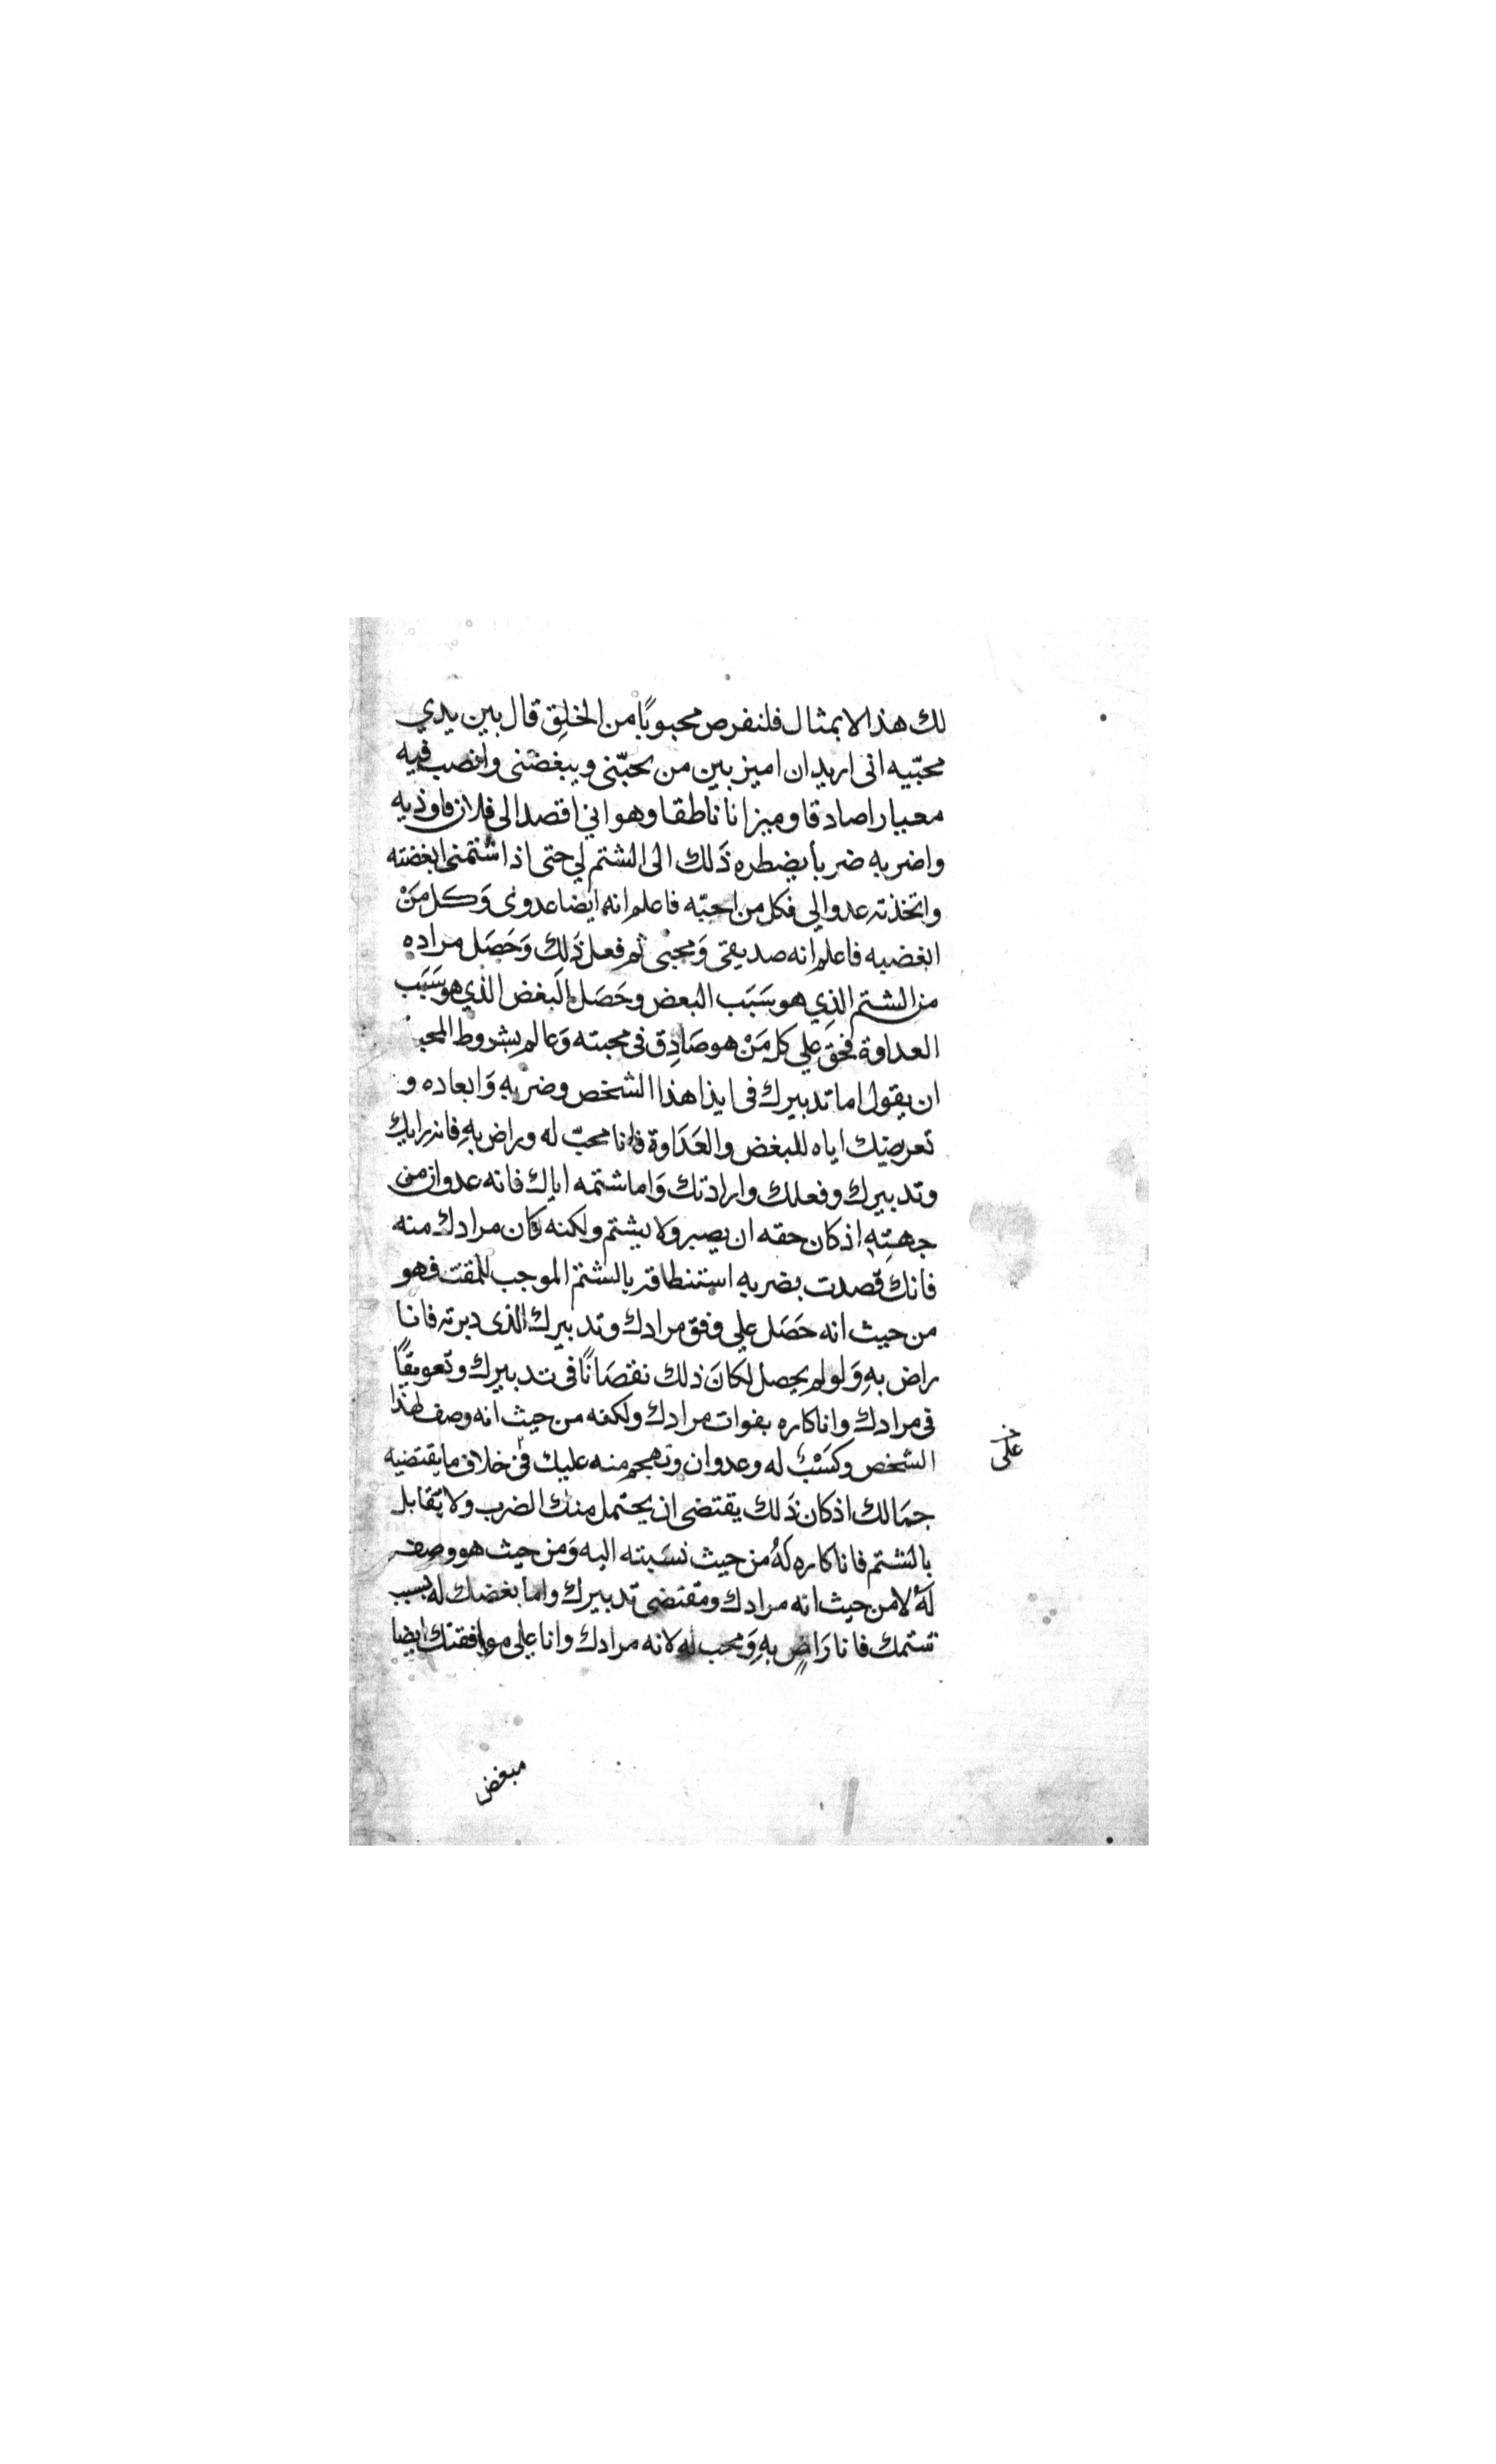 لك هذا الا بمثال فلنفرض محبوبًا من الخلق قال بين يدي
محبّيه انى اريد ان اميز بين من يحبّنى ويبغضنى وانصب فيه
معيارا صادقا وميزانا ناطقا وهو انى اقصد الى فلان فاوذيه
واضربه ضربا يضطره ذَلك الى الشتم لي حتى اذا شتمنى ابغضته
واتخذته عدوا لي فكل من احبّه فاعلم انه ايضا عدوى وَكل مَنْ
ابغضه فاعلم انه صديقى وَمحبى ثم فعل ذَلِك وَحَصَل مراده
من الشتم الذِي هو سَبَب البغض وحَصَل البغض الذي هو سَبَب
العداوة فحقَ علي كل مَنْ هو صَادِق فى محبته وَعالم بشروط المحبة
ان يقول اما تدبيرك فى ايذا هذا الشخص وضربهِ وَابعاده و
تعريضك اياه للبغض والعَدَاوة فانا محبّ له وراض بهِ فانه رايك
وتدبيرك وفعلك وارادتك وَاما شتمه اياك فانه عدوان من
جهتِهِ اذ كان حقه ان يصبر ولا يشتم ولكنه كان مرادك منه
فانك قصدت بضربه استنطاقه بالشتم الموجب للمقت فهو
من حيث انه حَصَل علي وفق مرادك وتدبيرك الذى دبرته فانا
راض بهِ وَلو لم يحصل لكانَ ذلك نقصَانًا فى تدبيرك وتعويقًا
فى مرادك وانا كاره بفوات مرادك ولكنه من حيث انه وصف لهذا
الشخص وكسْبٌ له وعدوان وتهجم منه عليك فى خلاف ما يقتضيه
على
جمَالك اذ كان ذَلك يقتضى ان يحتمل منك الضرب ولا يقابل
بالشتم فانا كاره لَهُ من حيث نسَبته اليه وَمن حيث هو وصف
لَهُ لا من حيث انه مرادك ومقتضى تدبيرك واما بغضك له بسبب
شتمك فانا رَاضٍ بهِ وَمحب له لانه مرادك وانا علي موافقتك ايضا
مبغض